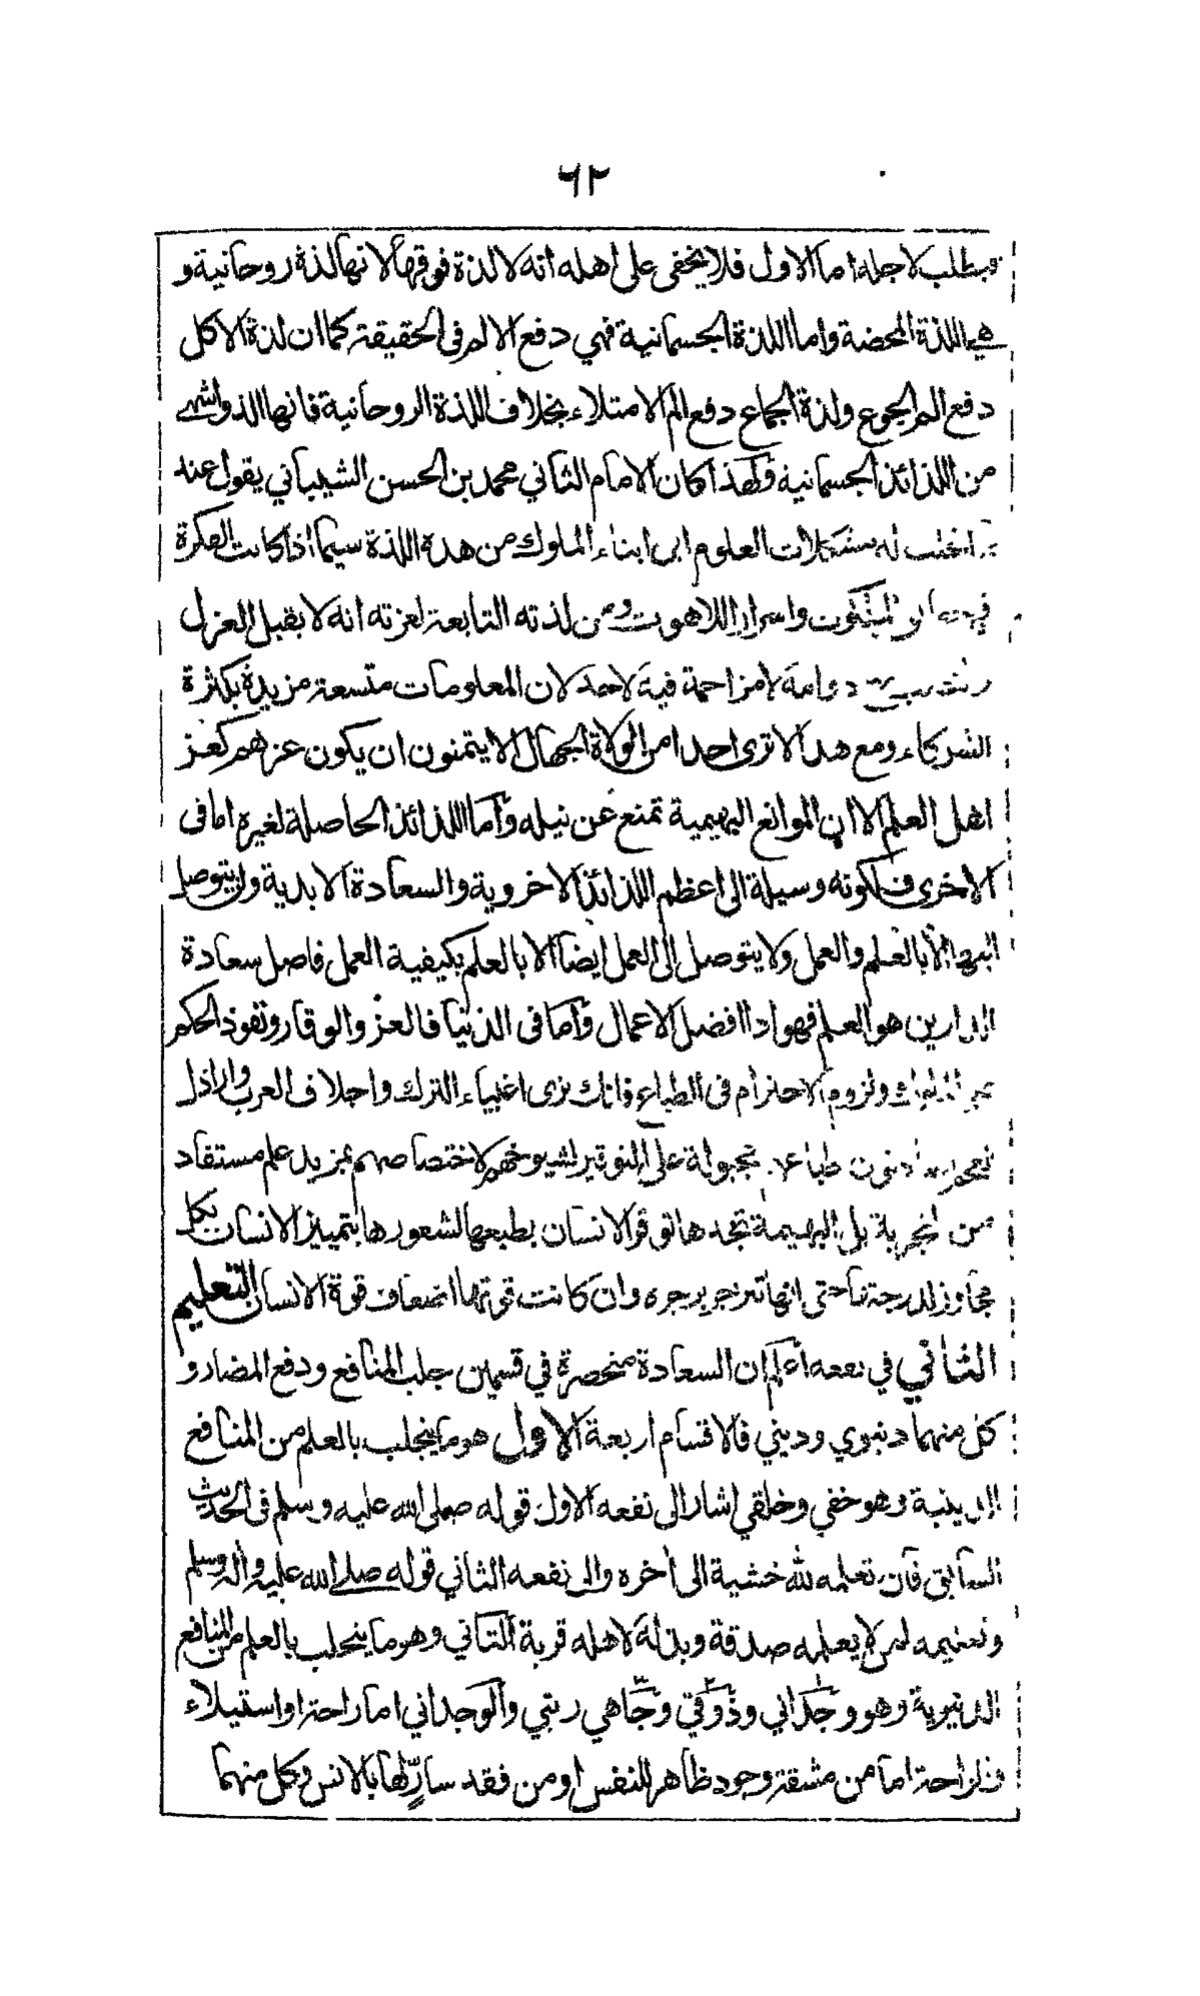 ٦٢
فيطلب لاجله اما الاول فلا يخفى على اهله انه لا لذة فوقها لانها لذة روحانية و
هي اللذة المحضة واما اللذة الجسمانية فهي دفع الالم في الحقيقة كما ان لذة الاكل
دفع الم الجوع ولذة الجماع دفع الم الامتلاء بخلاف اللذة الروحانية فانها الذ واشهى
من اللذائذ الجسمانية ولهذا كان الامام الثاني محمد بن الحسن الشيباني يقول عند
انحلت له مشكلات العلوم اين ابناء الملوك من هذه اللذة سيما اذا كانت الفكرة
في الملكوت واسرار اللاهوت ومن لذته التابعة لعزته انه لا يقبل العزل
دوامه لا مزاحمة فيه لاحد لان المعلومات متسعة مزيدة بكثرة
الشركاء ومع هذا لا ترى احدا من الولاة الجهال الا يتمنون ان يكون عزهم كعز
اهل العلم الا ان الموانع البهيمية تمنع عن نيله واما اللذائذ الحاصلة لغيره اما في
الاخرى فلكونه وسيلة الى اعظم اللذائذ الاخروية والسعادة الابدية ولن يتوصل
اليها الا بالعلم والعمل ولا يتوصل الى العمل ايضا الا بالعلم بكيفية العمل فاصل سعادة
الدارين هو العلم فهو اذا افضل الاعمال واما في الدنيا فالعز والوقار ونفوذ الحكم
على الملوك ولزوم الاحترام في الطباع فانك ترى اغبياء الترك واجلاف العرب واراذل
العجم يصادفون طباعهم مجبولة على التوقير لشيوخهم لاختصاصهم بمزيد علم مستفاد
من التجربة بل البهيمة تجدها توقر الانسان بطبعها لشعورها بتمييز الانسان بكل
مجاوز لدرجتها حتى انها تنزجر بزجره وان كانت قوتها اضعاف قوة الانسان التعليم
الثاني في نفعه اعلم ان السعادة منحصرة في قسمين جلب المنافع ودفع المضار و
كل منهما دنيوي وديني فالاقسام اربعة الاول هو ما ينجلب بالعلم من المنافع
الدينية وهو خفي وخلقي اشار الى نفعه الاول قوله صلى الله عليه وسلم في الحديث
السابق فان تعلمه لله خشية الى اخره والى نفعه الثاني قوله صلى الله عليه واله وسلم
وتعليمه لمن لا يعلمه صدقة وبذله لاهله قربة الثاني وهو ما ينجلب بالعلم من المنافع
الدنيوية وهو وجداني وذوقي وجاهي رتبي والوجداني اما راحة او استيلاء
والراحة اما من مشقة وجود ظاهر للنفس او من فقد سار لها بالانس وكل منهما